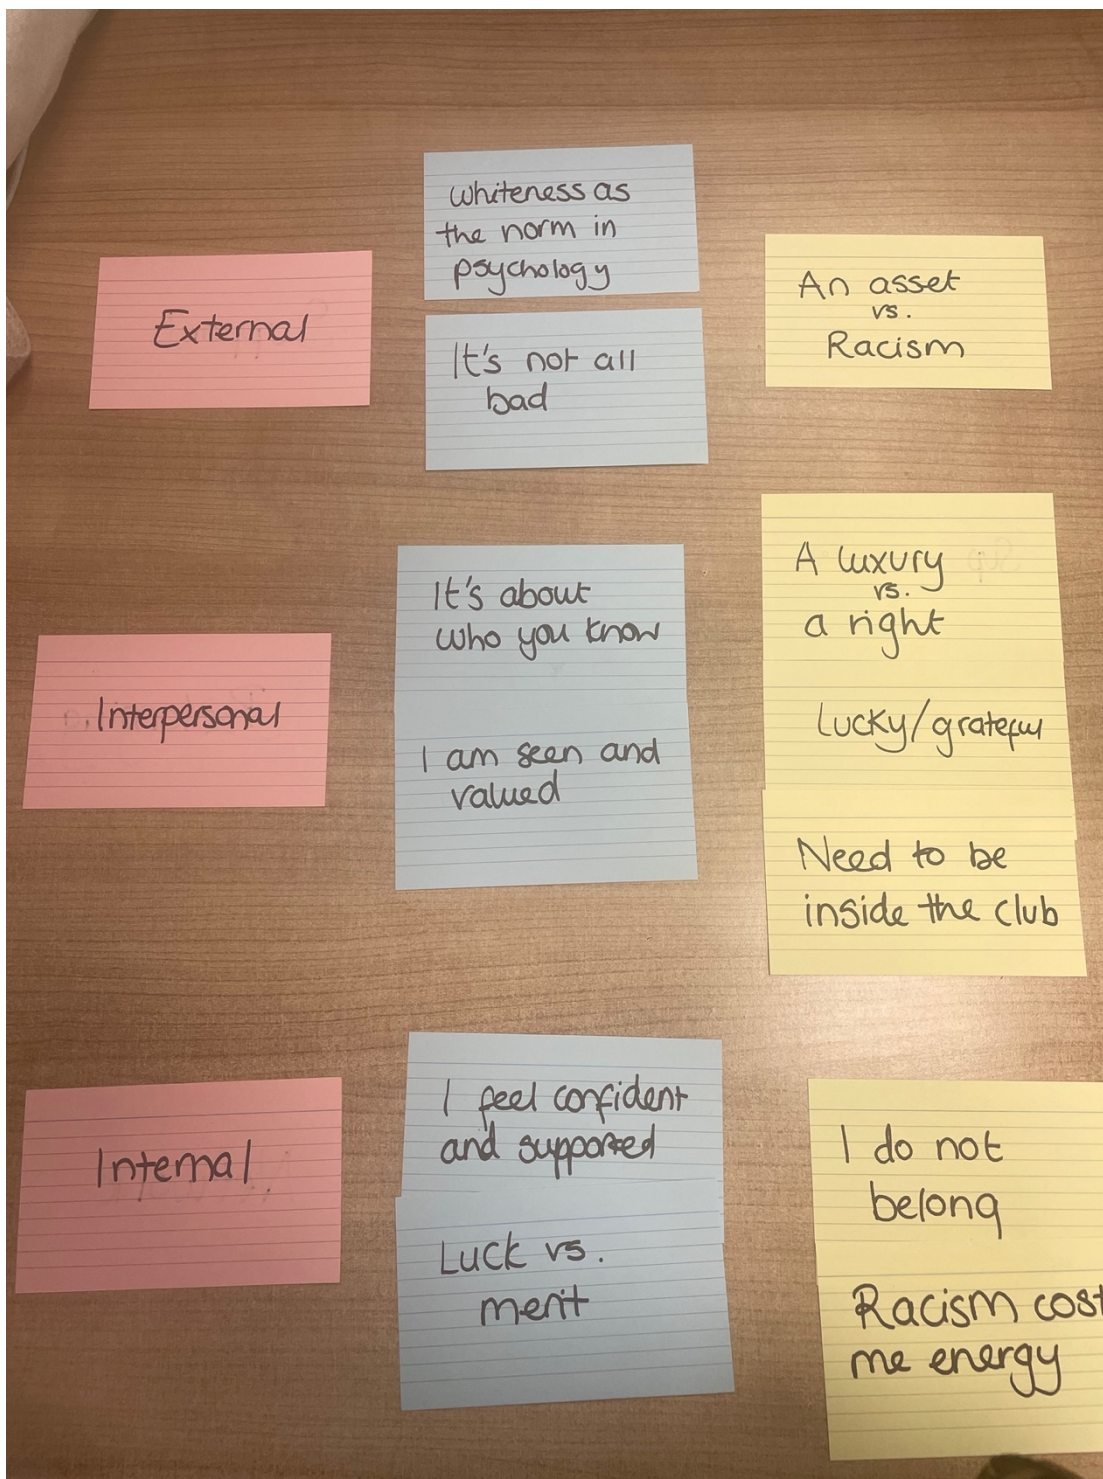 External
Whiteness as
the norm in
psychology
It's not all
bad
An asset
vs.
Racism
Interpersonal
It's about
who you know
I am seen and
valued
A luxury
vs.
a right
Lucky/grateful
Need to be
inside the club
Internal
I feel confident
and supported
Luck vs.
merit
I do not
belong
Racism cost
me energy